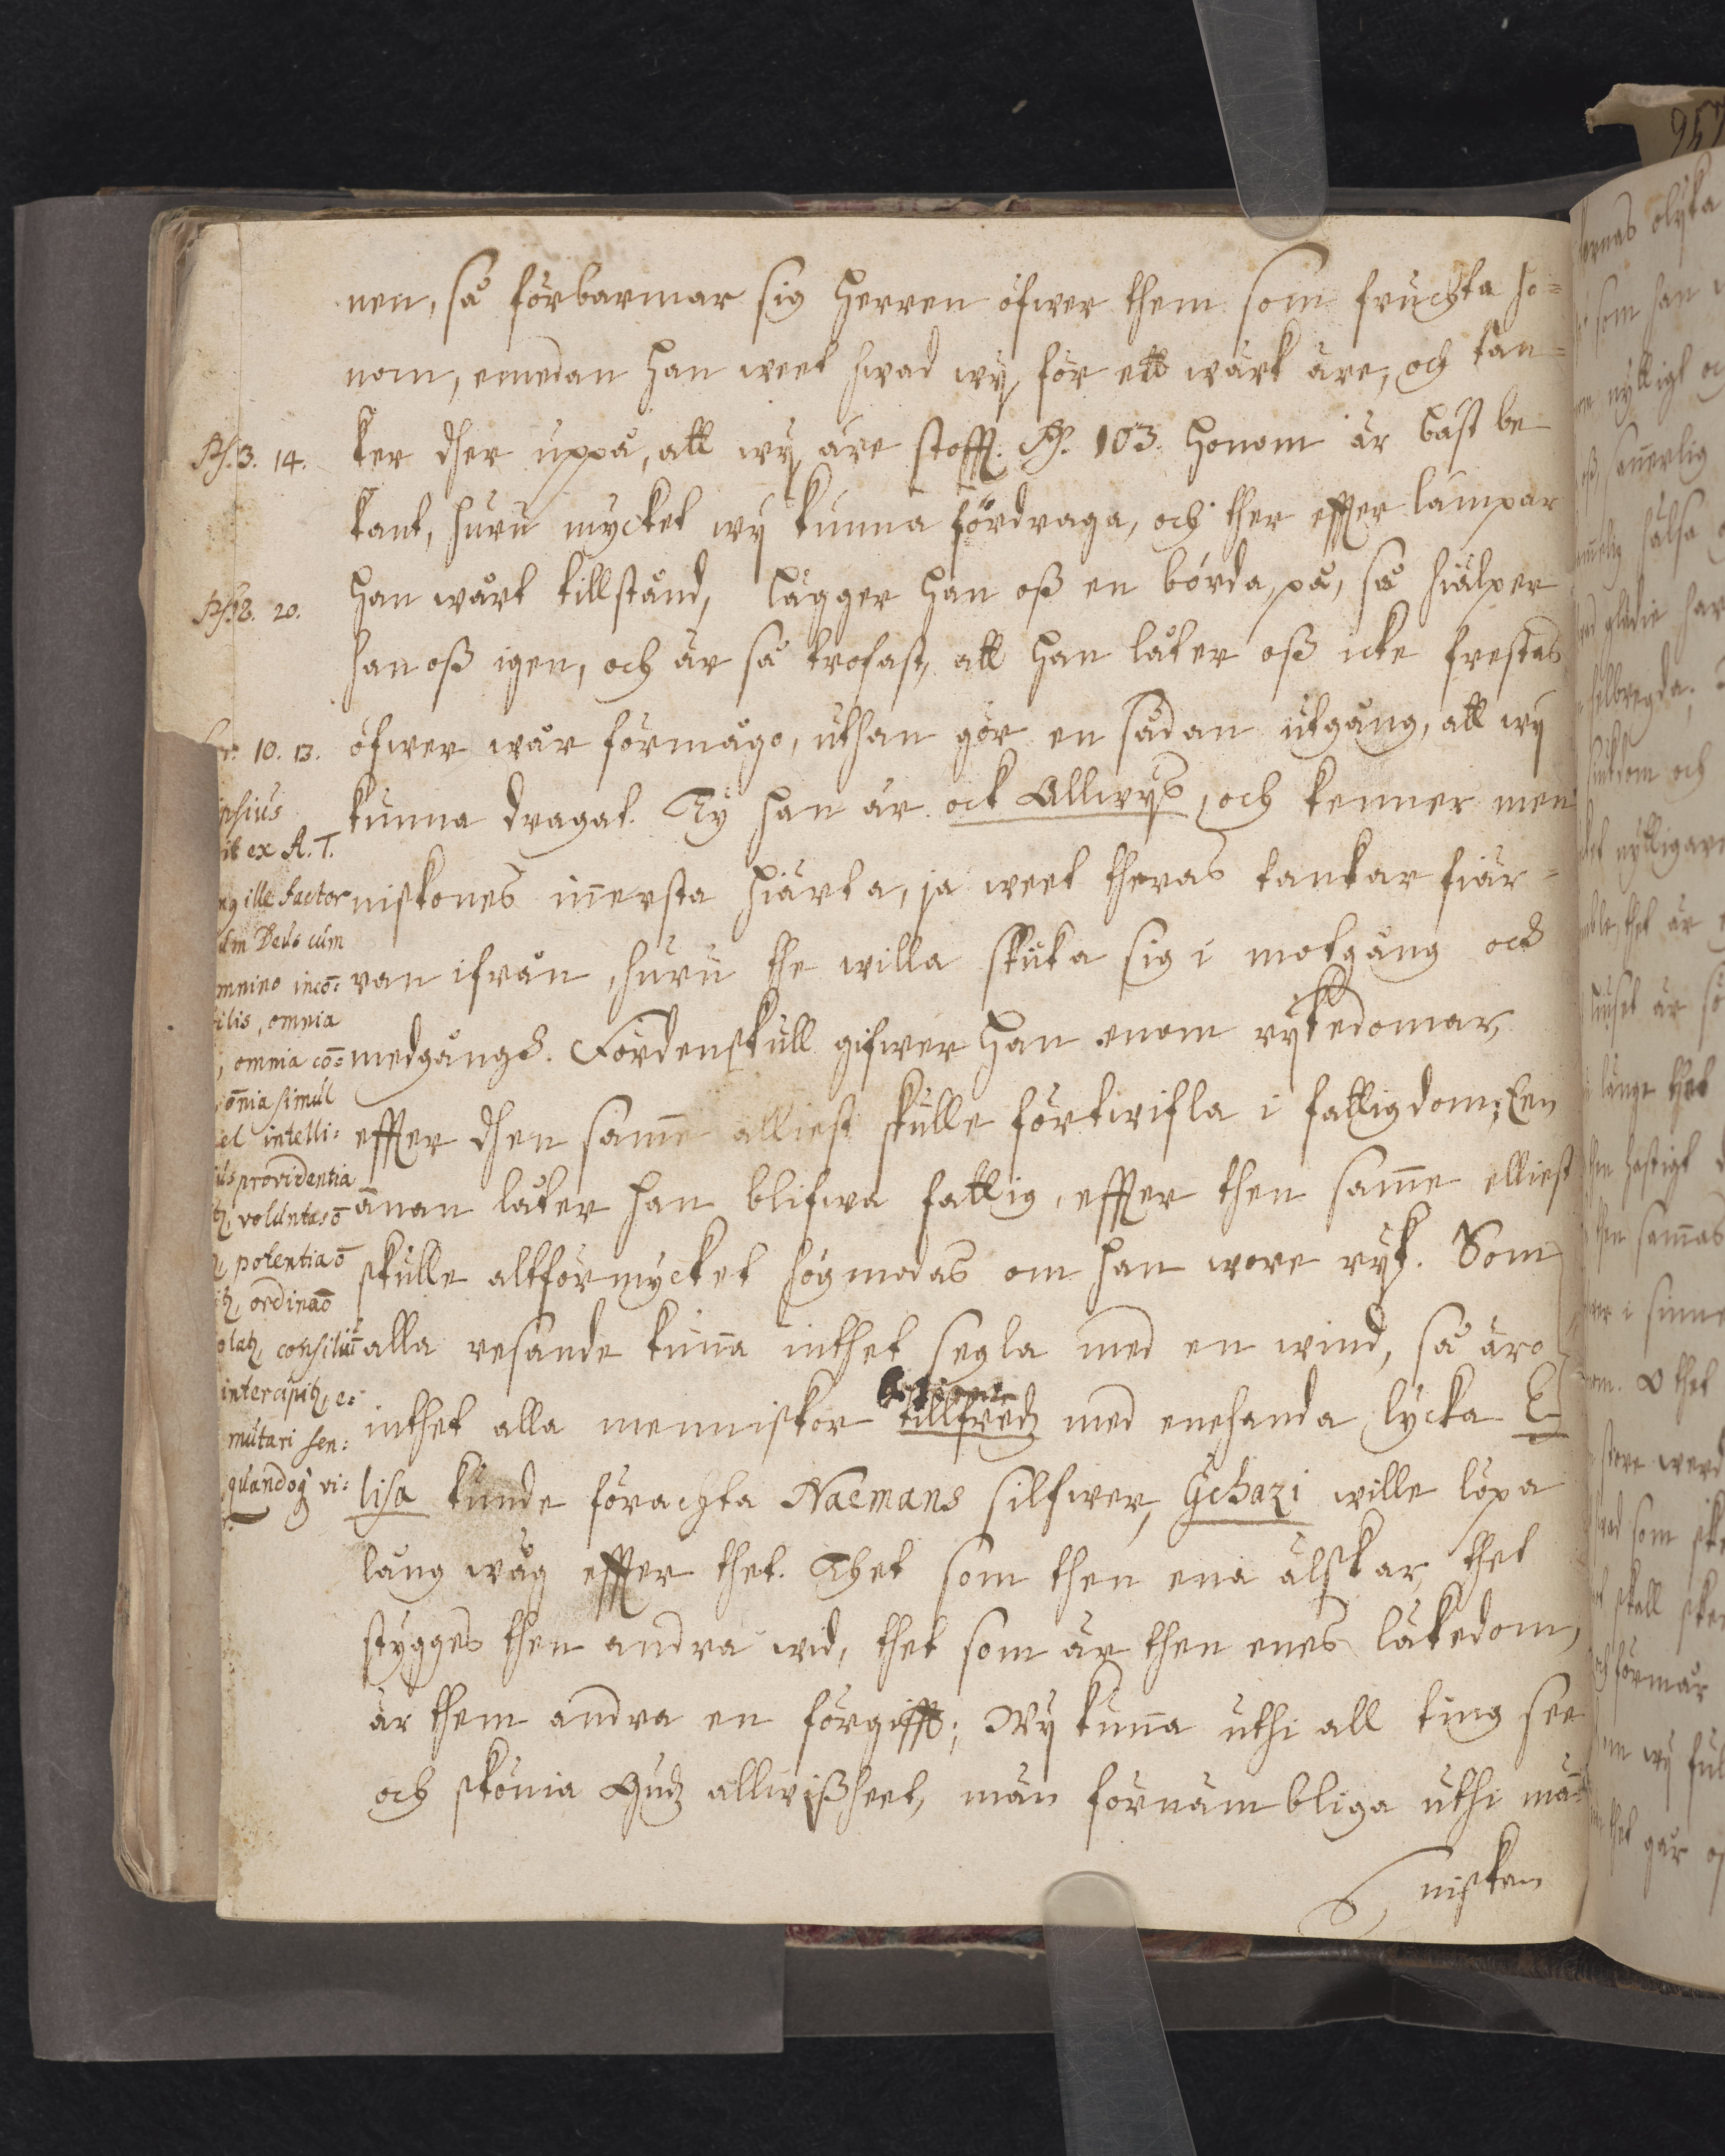 nen, så förbarmar sig Herren öfwer them som fruchta ho=
nom, emedan han weet hwad wij för ett wärk äre, och tän=
ker dher uppå, att wij äre stofft. Ps. 103. Honom är bäst be
kant, huru mycket wij kunna fördraga, och ther effter lämpar
han wårt tillstånd, lägger han oß en börda på, så hiälper
han oß igen, och är så trofast, att han låter oß icke frestas
öfwer wår förmågo, uthan gör en sådan utgång, att wij
kunna dragat. Ty han är ock Allwijs, och kenner men
niskones innersta hiärta, ja weet theras tankar fiär=
ran ifrån, huru the willa skicka sig i motgång och
medgång. Fördenskull gifwer han enom rijkedomar,
effter dhen samme elliest skulle förtwifla i fattigdom; Een
annan låter han blifwa fattig, effter then samme elliest
skulle altförmycket högmodas om han wore rijk. Som
alla resande kunna inthet segla med en wind, så äro
inthet alla menniskor tillfredz med enehanda lycka E
lisa kunde förachta Naemans silfwer, Gehazi wille löpa
lång wäg effter thet. Thet som then ena älskar, thet
stygges then andra wid, thet som är then enes läkedom,
är them andra en förgifft; Wij kunna uthi all ting see
och skönia Gudz allwißheet, män förnämbliga uthi män
niskan
Ps. 3. 14.
Ps. 8. 20.
10. 13.
ex A. T.
ille factor
Deus cum
mnino inco=
ilis, omnia
, omnia co=
omnia simul
intelli=
providentia
voluntas o
potentia o
ordina o
consiliu
intercipitq, e=
mutari sen=
quandoq vi=